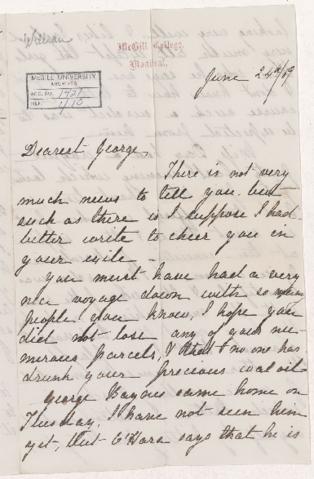 McGill College,
Montreal.
McGILL UNIVERSITY
ARCHIVES
ACC. NO. 1927
REF.
June 24th/69
Dearest George,
There is not very
much news to tell you but
such as there is I suppose I had
better write to cheer you in
your exile —
You must have had a very
nice voyage down with so many
people you know, I hope you
did not lose any of your nu-
merous parcels, & that no one has
drunk your precious coal oil
George Baynes came home on
Tuesday, I have not seen him
yet, but O'Hara says that he is